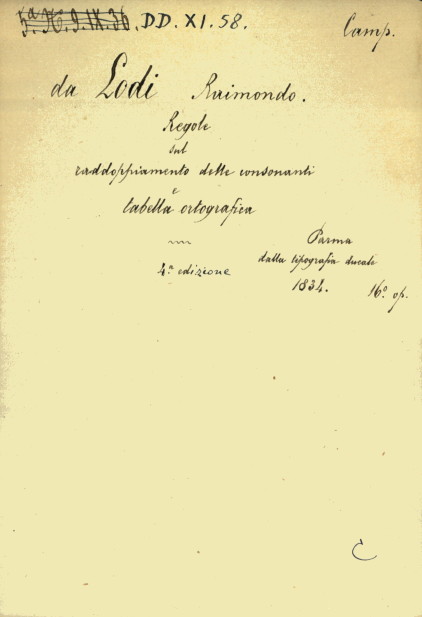 5ª H. 9. IX. 36. DD. XI. 58.
Camp.
da Lodi Raimondo.
Regole
sul
raddoppiamento delle consonanti
e
tabella ortografica
4.ª edizione
Parma
dalla tipografia ducale
1834.
16.º op.
C